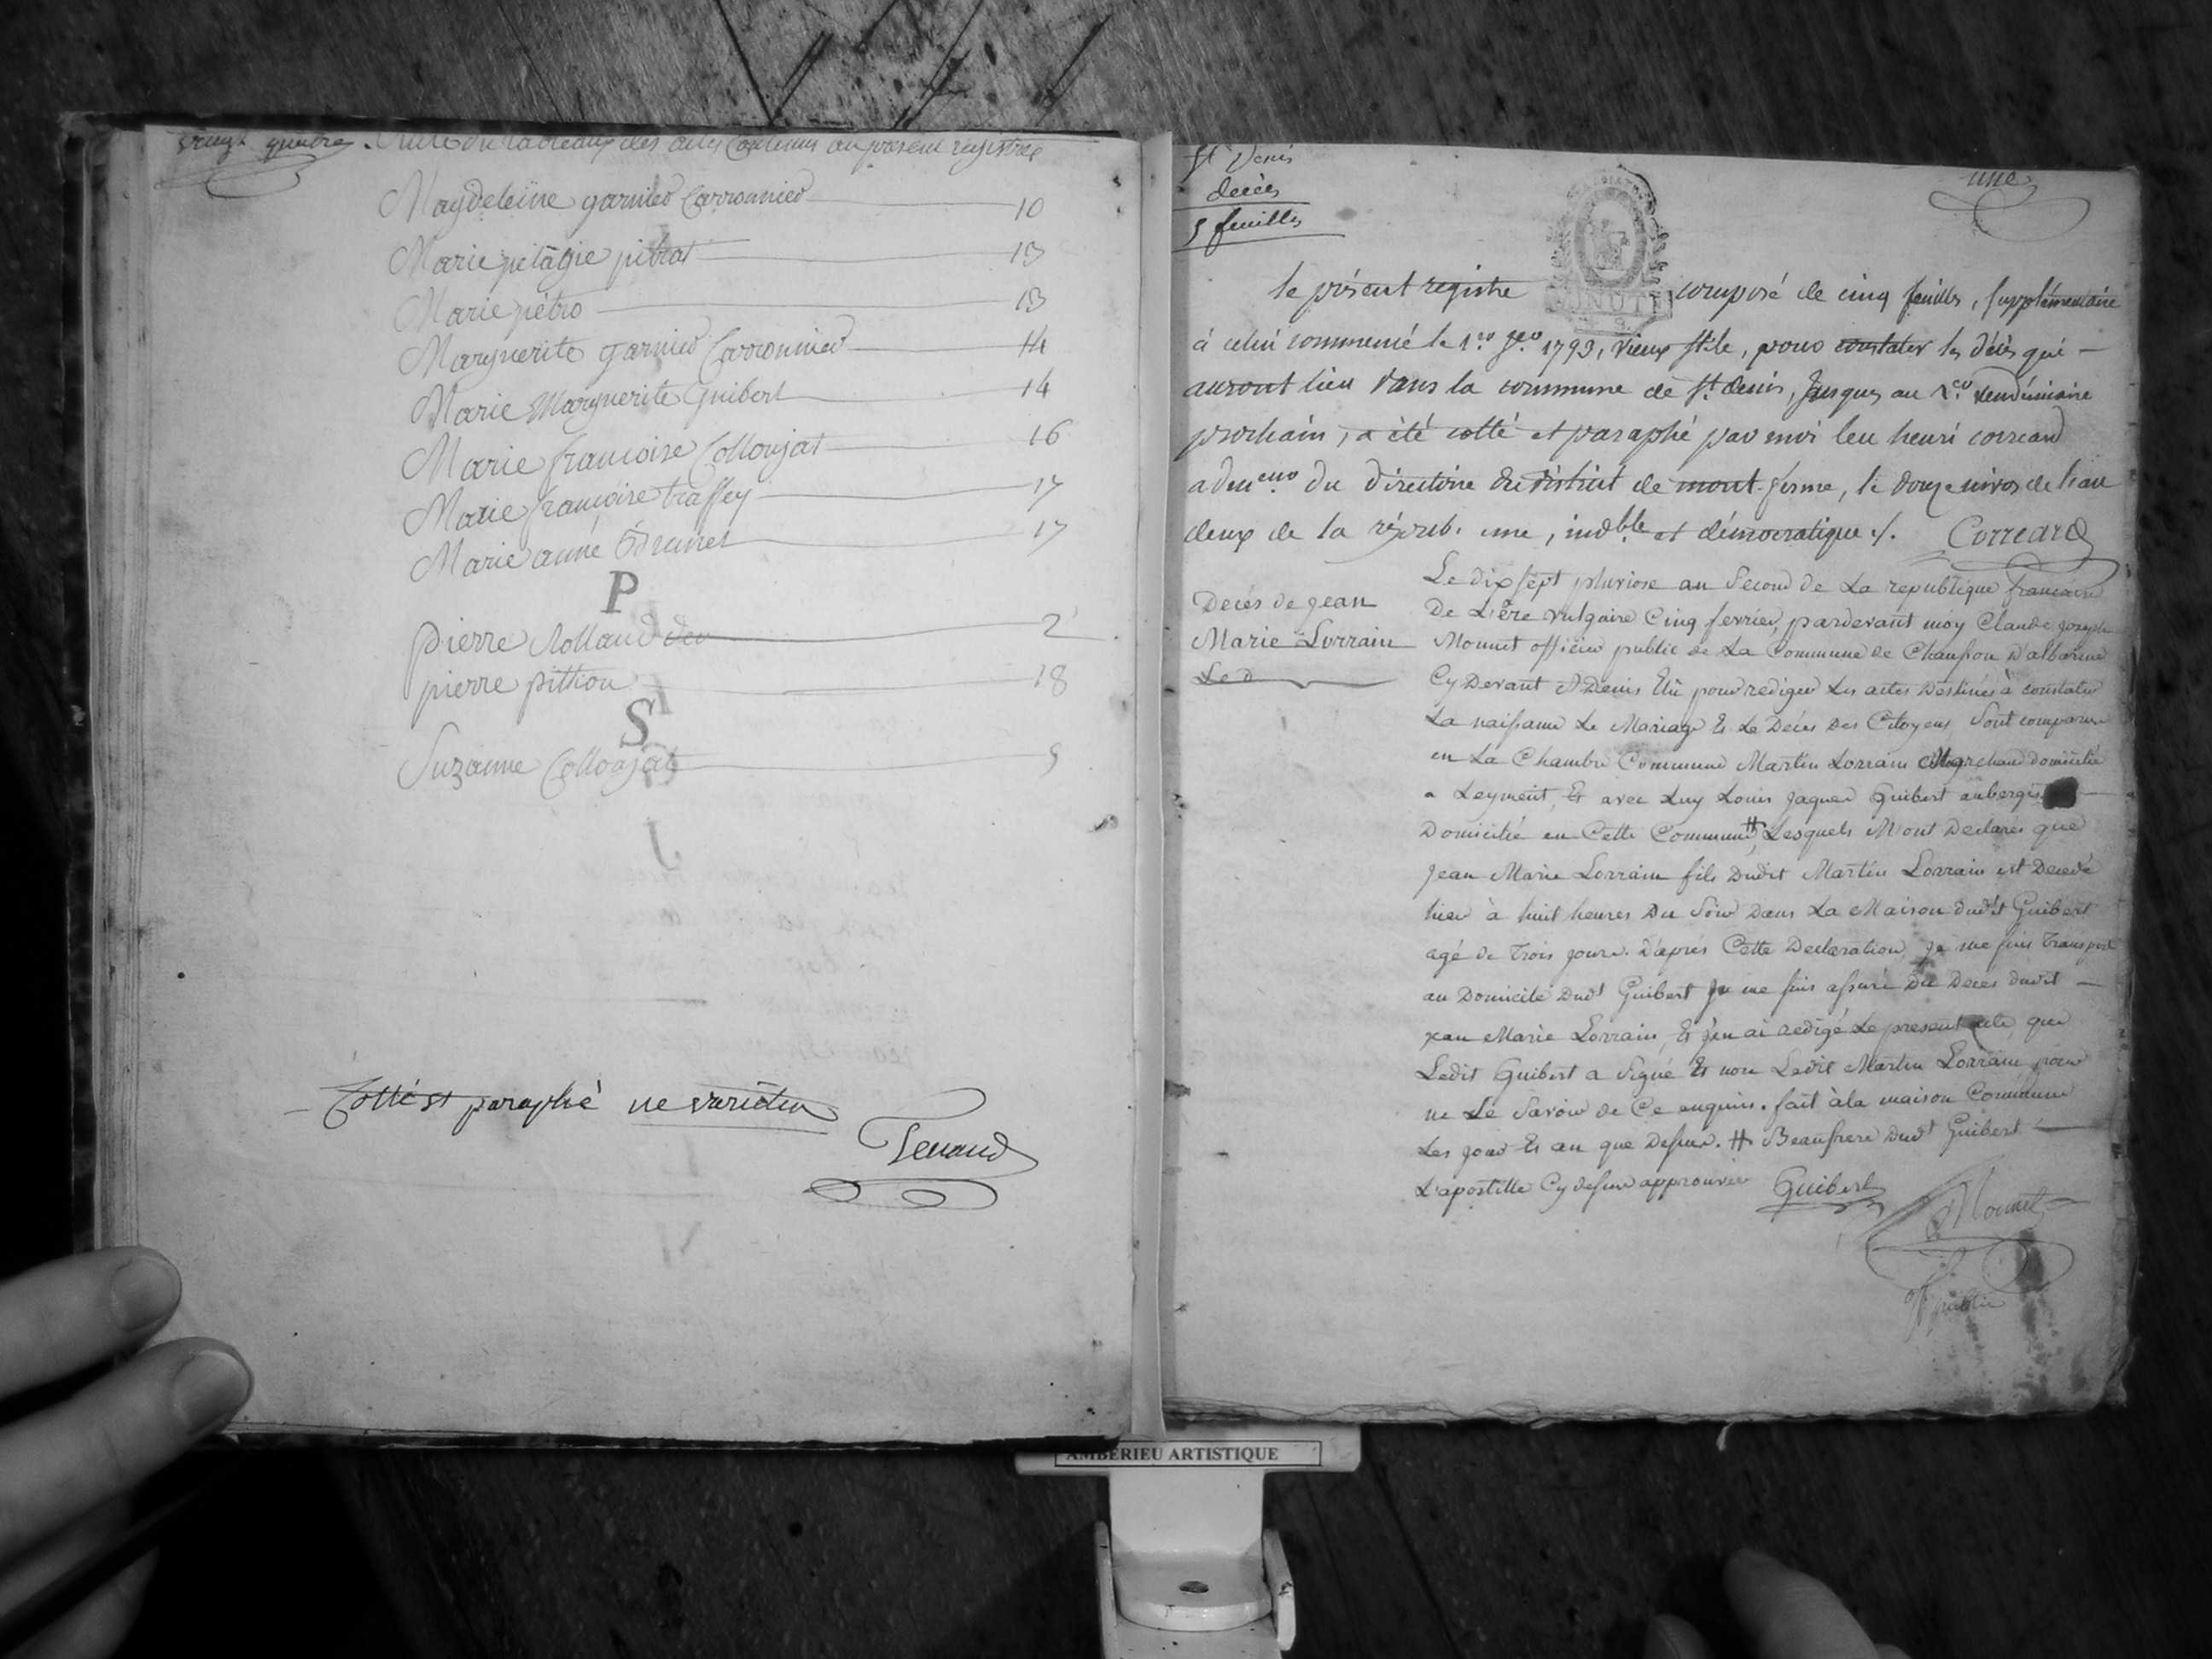 vingt quatre. Suite du tableaux des actes Contenus au present registre
Magdeleine garnier Carronnier 10
Marie pelagie pibrat 13
Marie pétro 13
Marguerite garnier Carronnier 14
Marie Marguerite Guibert 14
Marie francoise Collonjat 16
Marie francoise traffey 17
Marie anne Brunet 17
P
pierre Rolland 2
pierre pittion 18
S
Suzanne Collonjat 5
Cotté et paraphé ne varietur
Tenand
St Denis
decès
5 feuilles
une
le présent registre composé de cinq feuilles, supplémentaire
MINUTE
à celui commencé le 1.er 1793, vieux stile, pour constater les décès qui
auront lieu dans la commune de St. denis, Jusques au 1.er vendémiaire
prochain, a été cotté et paraphé par moi leu henri correard
du directoire du district de mont-ferme, le douze nivos de l'an
deux de la répub. une, indble et démocratique ./. Correard
Decés de jean
Marie Lorrain
Le dix sept pluviose an Second de La republique francaise
De L'ére vulgaire Cinq fevrier, pardevant moy Claude joseph
Monnet officier public de La Commune de Chanfron D'albarine
Cy Devant St Denis Elû pour rediger Les actes Destinés à constater
La naissance Le Mariage Et Le Decés Des Citoyens Sont comparu
en La Chambre Commune Martin Lorrain Marchand domicilié
a Leyment, Et avec Luy Louis jaques Guibert
Domicilié en Cette Commune # Lesquels M'ont Declarés que
Jean Marie Lorrain fils Dudit Martin Lorrain est Decedé
hier à huit heures Du Soir Dans La Maison dudit Guibert
agé de trois jours. D'aprés Cette Declaration Je me suis transporté
au Domicile Dudt Guibert Je me suis assuré Du Deces dudit
jean Marie Lorrain, Et j'en ai redigé Le present acte, que
Ledit Guibert a Signé Et non Ledit Martin Lorrain pour
ne Le Savoir de Ce enquis. fait à la maison Commune
Les jour Et an que Dessus. # Beaufrere Dudt Guibert
L'apostille Cy dessus approuvée Guibert
Monnet
off public
AMBERIEU ARTISTIQUE